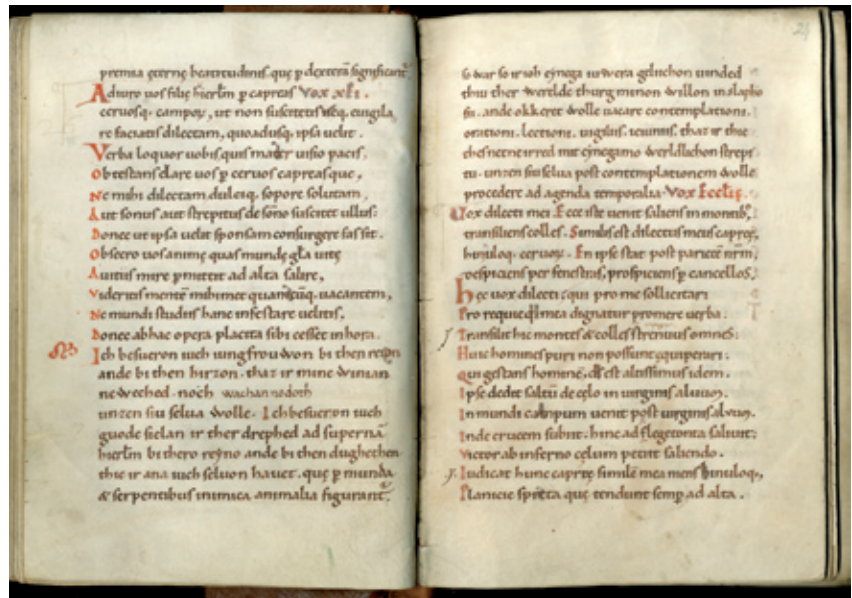 premia ęternę beatitudinis, quę p dexterā significant᷑.
Adiuro uos filię hierl̄m p capreas Vox xp̄i.
ceruosq; campoꝝ, ut non suscitetis neq; euigila
re faciatis dilectam, quoadusq; ipsa uelit.
Verba loquor uobis, quis mater uisio pacis,
Obtestans clare uos p ceruos capreasque,
Ne mihi dilectam, dulciq; sopore solutam,
Aut sonus aut strepitus de sōno suscitet ullus:
Donec ut ipsa uelit sponsam consurgere fas sit.
Obsecro uos animę quas mundę gl̄a uitę
Auitus mire pmittit ad alta salire,
Videritis mentē mihimet quamcūq; uacantem,
Ne mundi studiis hanc infestare uelitis,
Donec ab hac opera placita sibi cesset in hora.
Ich besueron iuch iungfrouwon bi then reion
ande bi then hirzon. thaz ir mine winian
ne weched. noch wachan nodoth
unzen siu selua wolle. Ich besueron iuch
guode sielan ir ther drephed ad supernā
hierl̄m bi thero reyno ande bi then dughethen
thie ir ana iuch seluon hauet. quę p munda
& serpentibus inimica animalia figurant᷑.
24
so war so ir ioh eynega iuwera geluchon uinded
thiu ther werlde thurg minon willon in slapho
si. ande okkeret wolle uacare contemplationi.
orationi. lectioni. uigiliis. ieiuniis. thaz ir thie
thes ne ne irred mit eynegamo werldlichon streps
tu. unzen siu selua post contemplationem wolle
procedere ad agenda temporalia. Vox Eccl̄ię.
Vox dilecti mei. Ecce iste uenit saliens in montib;
transiliens colles. Similis est dilectus meus caprę,
hinuloq; ceruoꝝ. En ipse stat post parietē nr̄m,
respiciens per fenestras, prospiciens p cancellos.
Hęc uox dilecti; qui pro me sollicitari
Pro requie q̄ mea dignatur promere uerba.
Transilit hic montes & colles strenuus omnes:
Huic homines puri non possunt ęquiperari:
Qui gestans hominē, d̄s est altissimus idem.
Ipse dedit saltū de cęlo in uirginis aluum.
In mundi campum uenit post uirginis aluum.
Inde crucem subiit. hinc ad flegetonta saliuit:
Victor ab inferno cęlum petiit saliendo.
Iudicat hunc caprę similē mea mens hinuloq;,
Planicie spreta quę tendunt semp ad alta.